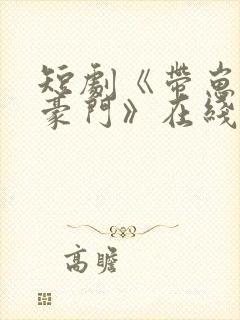 短劇《帶崽
豪門》在綫
高瞻